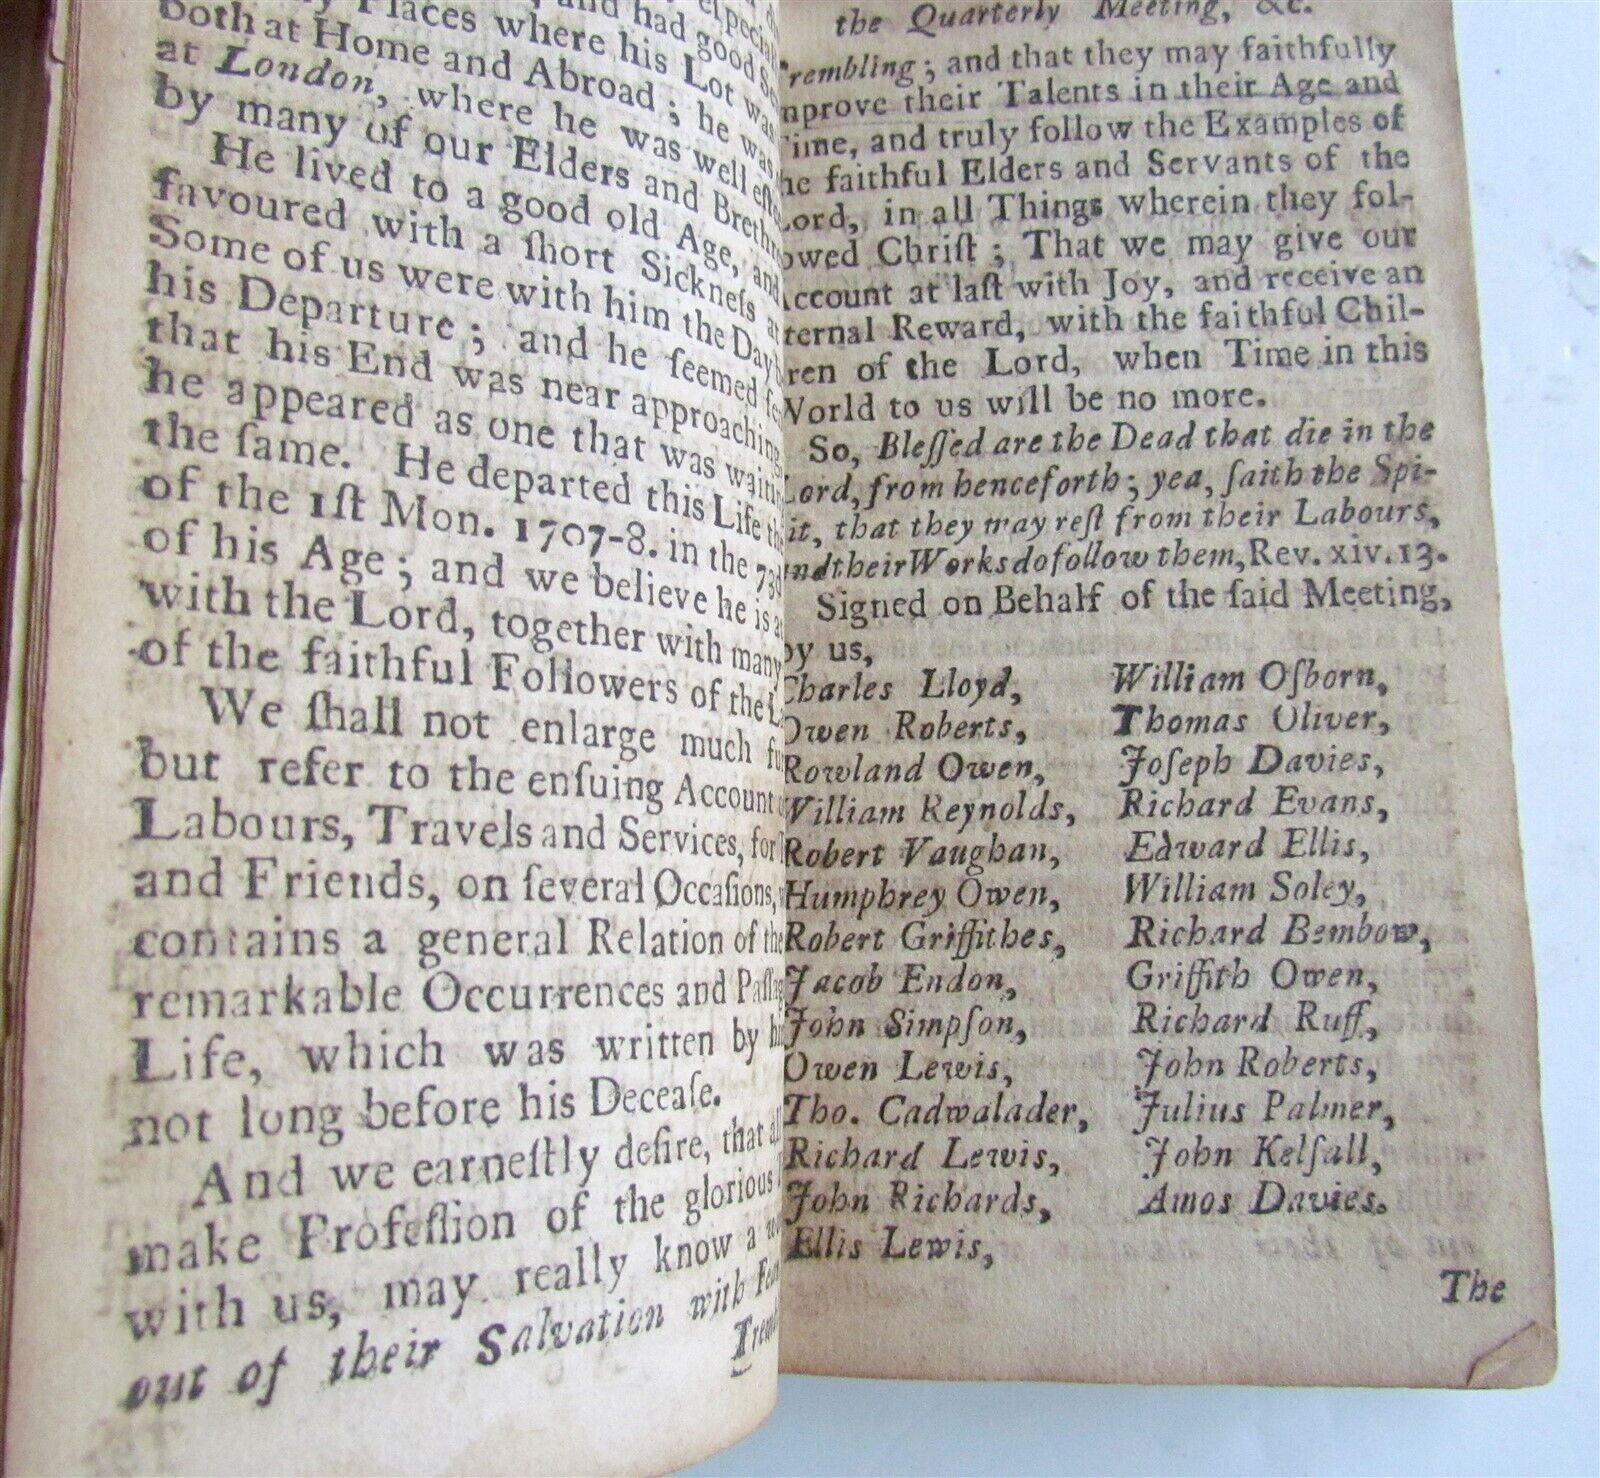 Places where his Lot was
both at Home and Abroad; he was
at London, where he was well
by many of our Elders and
He lived to a good old Age, and
favoured with a ſhort Sickneſs at
Some of us were with him the Day
his Departure; and he ſeemed
that his End was near approaching,
he appeared as one that was
the ſame. He departed this Life the
of the 1ſt Mon. 1707-8. in the 73d
of his Age; and we believe he is
with the Lord, together with many
of the faithful Followers of the
We ſhall not enlarge much
but refer to the enſuing Account
Labours, Travels and Services, for
and Friends, on ſeveral Occaſions,
contains a general Relation of the
remarkable Occurrences and
Life, which was written by
not long before his Deceaſe.
And we earneſtly deſire, that
make Profeſſion of the glorious
with us, may really know a
out of their Salvation with
the Quarterly Meeting, &c.
rembling; and that they may faithfully
mprove their Talents in their Age and
Time, and truly follow the Examples of
he faithful Elders and Servants of the
Lord, in all Things wherein they fol-
owed Chriſt; That we may give our
Account at laſt with Joy, and receive an
ternal Reward, with the faithful Chil-
ren of the Lord, when Time in this
World to us will be no more.
So, Bleſſed are the Dead that die in the
Lord, from henceforth; yea, ſaith the Spi-
it, that they may reſt from their Labours,
and their Works do follow them, Rev. xiv. 13.
Signed on Behalf of the ſaid Meeting,
by us,
Charles Lloyd,
Owen Roberts,
Rowland Owen,
William Reynolds,
Robert Vaughan,
Humphrey Owen,
Robert Griffithes,
Jacob Endon,
John Simpſon,
Owen Lewis,
Tho. Cadwalader,
Richard Lewis,
John Richards,
Ellis Lewis,
William Oſborn,
Thomas Oliver,
Joſeph Davies,
Richard Evans,
Edward Ellis,
William Soley,
Richard Bembow,
Griffith Owen,
Richard Ruff,
John Roberts,
Julius Palmer,
John Kelſall,
Amos Davies.
The